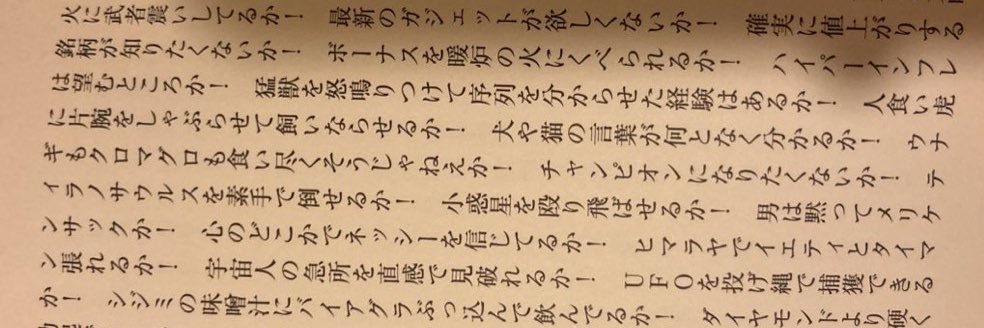 火に武者震いしてるか！　最新のガジェットが欲しくないか！　確実に値上がりする
銘柄が知りたくないか！　ボーナスを暖炉の火にくべられるか！　ハイパーインフレ
は望むところか！　猛獣を怒鳴りつけて序列を分からせた経験はあるか！　人食い虎
に片腕をしゃぶらせて飼いならせるか！　犬や猫の言葉が何となく分かるか！　ウナ
ギもクロマグロも食い尽くそうじゃねえか！　チャンピオンになりたくないか！　テ
ィラノサウルスを素手で倒せるか！　小惑星を殴り飛ばせるか！　男は黙ってメリケ
ンサックか！　心のどこかでネッシーを信じてるか！　ヒマラヤでイエティとタイマ
ン張れるか！　宇宙人の急所を直感で見破れるか！　ＵＦＯを投げ縄で捕獲できる
か！　シジミの味噌汁にバイアグラぶっ込んで飲んでるか！　ダイヤモンドより硬く